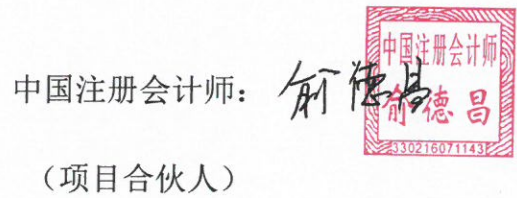 中国注册会计师：俞德昌
中国注册会计师
俞德昌
330216071143
（项目合伙人）